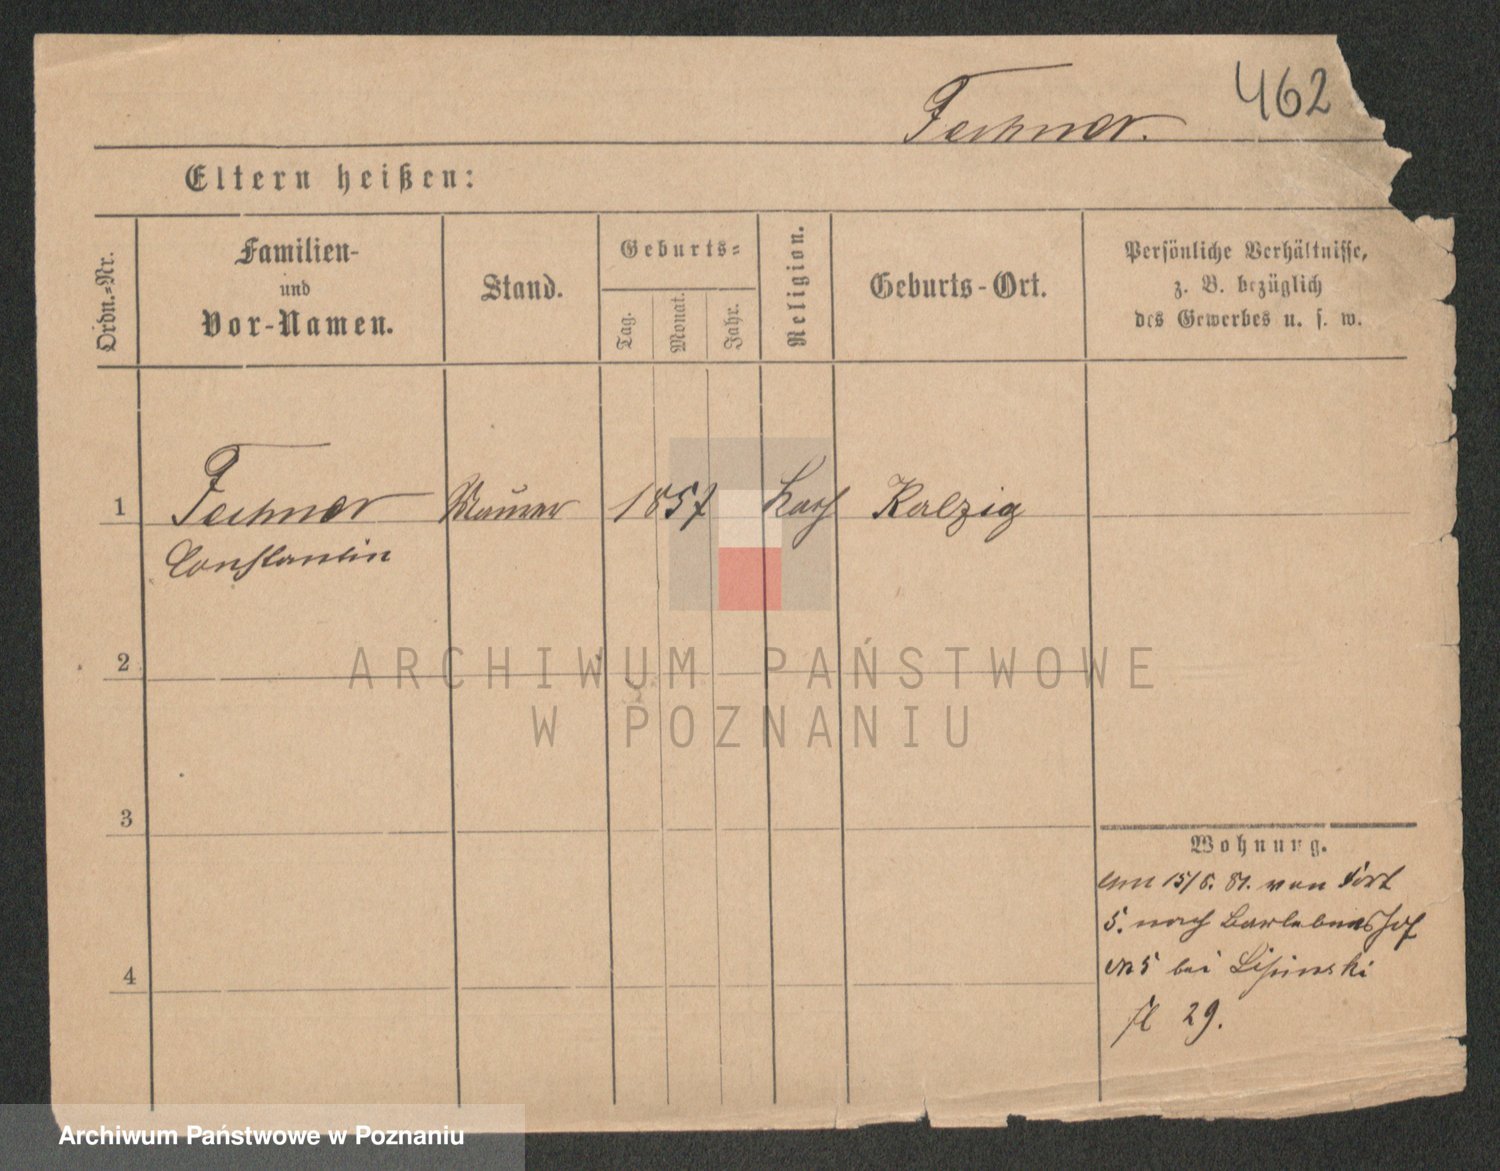 462
Fechner.
Eltern heißen:
Ordn.-Nr.
Familien-
und
Vor-Namen.
Stand.
Geburts-
Tag.
Monat.
Jahr.
Religion.
Geburts-Ort.
Persönliche Verhältnisse,
z. B. bezüglich
des Gewerbes u. s. w.
1 Fechner Maurer 1857 kath Kalzig
Constantin
2
ARCHIWUM PAŃSTWOWE
W POZNANIU
3
4
Wohnung.
am 15/8. 81. von Fort
5. nach Bartebenshof
No 5 bei
fl 29.
Archiwum Państwowe w Poznaniu